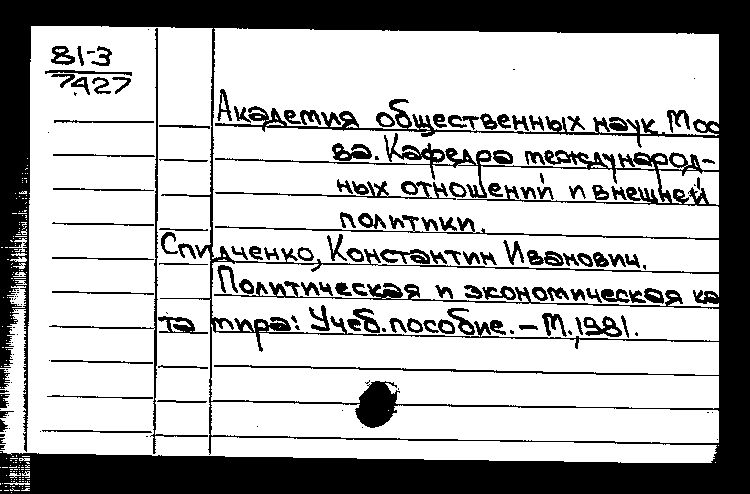 81-3
7427
Академия общественных наук. Мос
ва. Кафедра международ-
ных отношений и внешней
политики.
Спидченко, Константин Иванович.
Политическая и экономическая ка
та мира: Учеб. пособие. – М., 1981.